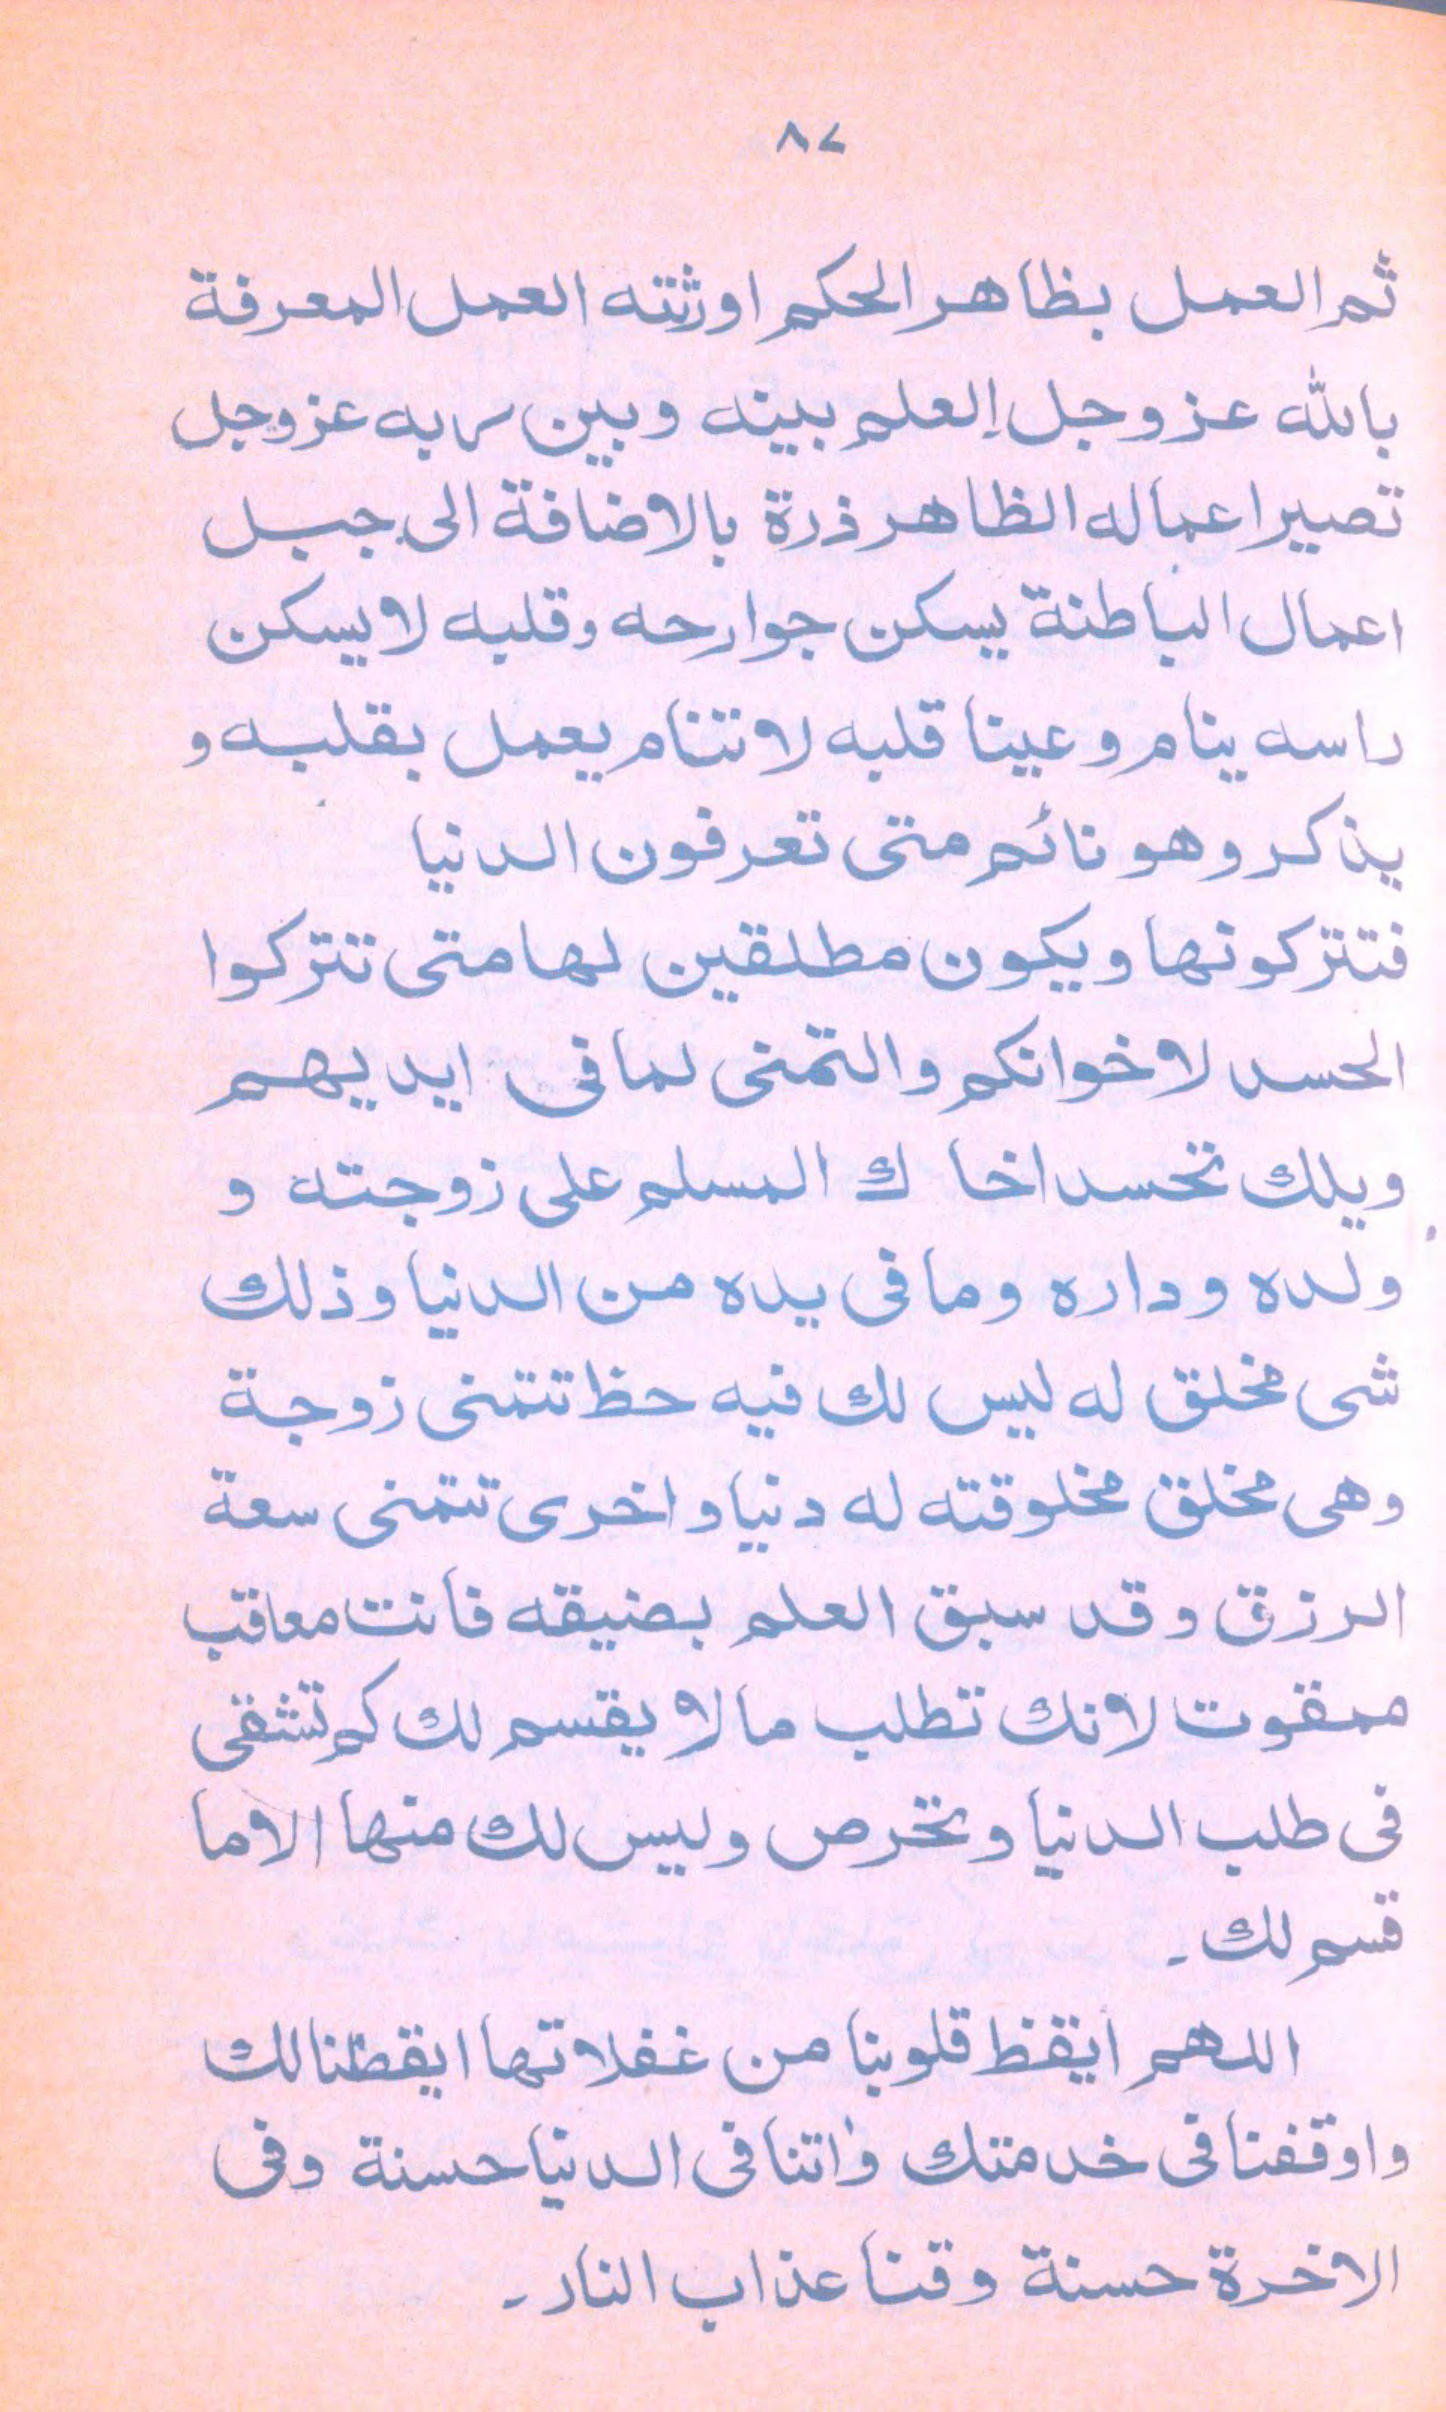 ٨٧
ثم العمل بظاهر الحكم اورثته العمل المعرفة
بالله عز وجل العلم بينه وبين ربه عزوجل
تصير اعماله الظاهر ذرة بالاضافة الى جبل
اعمال الباطنة يسكن جوارحه وقلبه لا يسكن
راسه ينام وعينا قلبه لا تنام يعمل بقلبه و
يذكر وهو نائم متى تعرفون الدنيا
فتتركونها ويكون مطلقين لها متى تتركوا
الحسد لاخوانكم والتمنى لما فى ايديهم
ويلك تحسد اخا ك المسلم على زوجته و
ولده وداره وما فى يده من الدنيا وذلك
شى مخلق له ليس لك فيه حظ تتمنى زوجة
وهى مخلق مخلوقته له دنيا واخرى تتمنى سعة
الرزق وقد سبق العلم بضيقه فانت معاقب
ممقوت لانك تطلب ما لا يقسم لك كم تشقى
فى طلب الدنيا وتخرص وليس لك منها الا ما
قسم لك ـ
اللهم ايقظ قلوبنا من غفلاتها ايقظنا لك
واوقفنا فى خدمتك واتنا فى الدنيا حسنة وفى
الاخرة حسنة وقنا عذاب النار ـ